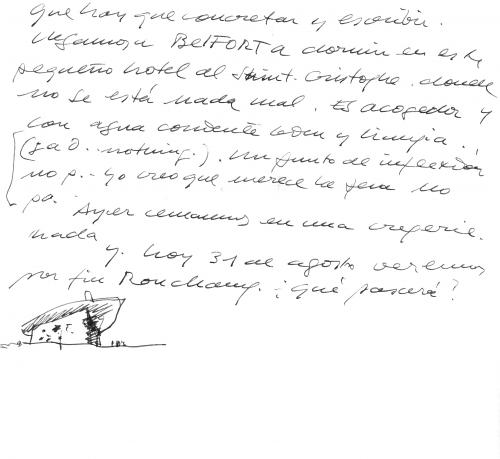 que hay que concretar y escribir.
Llegamos a BELFORT a dormir en este
pequeño hotel de Saint. Cristophe. donde
no se está nada mal. Es acogedor y
con agua corriente y limpia.
(I a D. nothing.). Un punto de inflexión
no p.. yo creo que merece la pena no
pa.
Ayer cenamos en una creperie.
nada
y hoy 31 de agosto veremos
por fin Ronchamp. ¿Qué pasará?